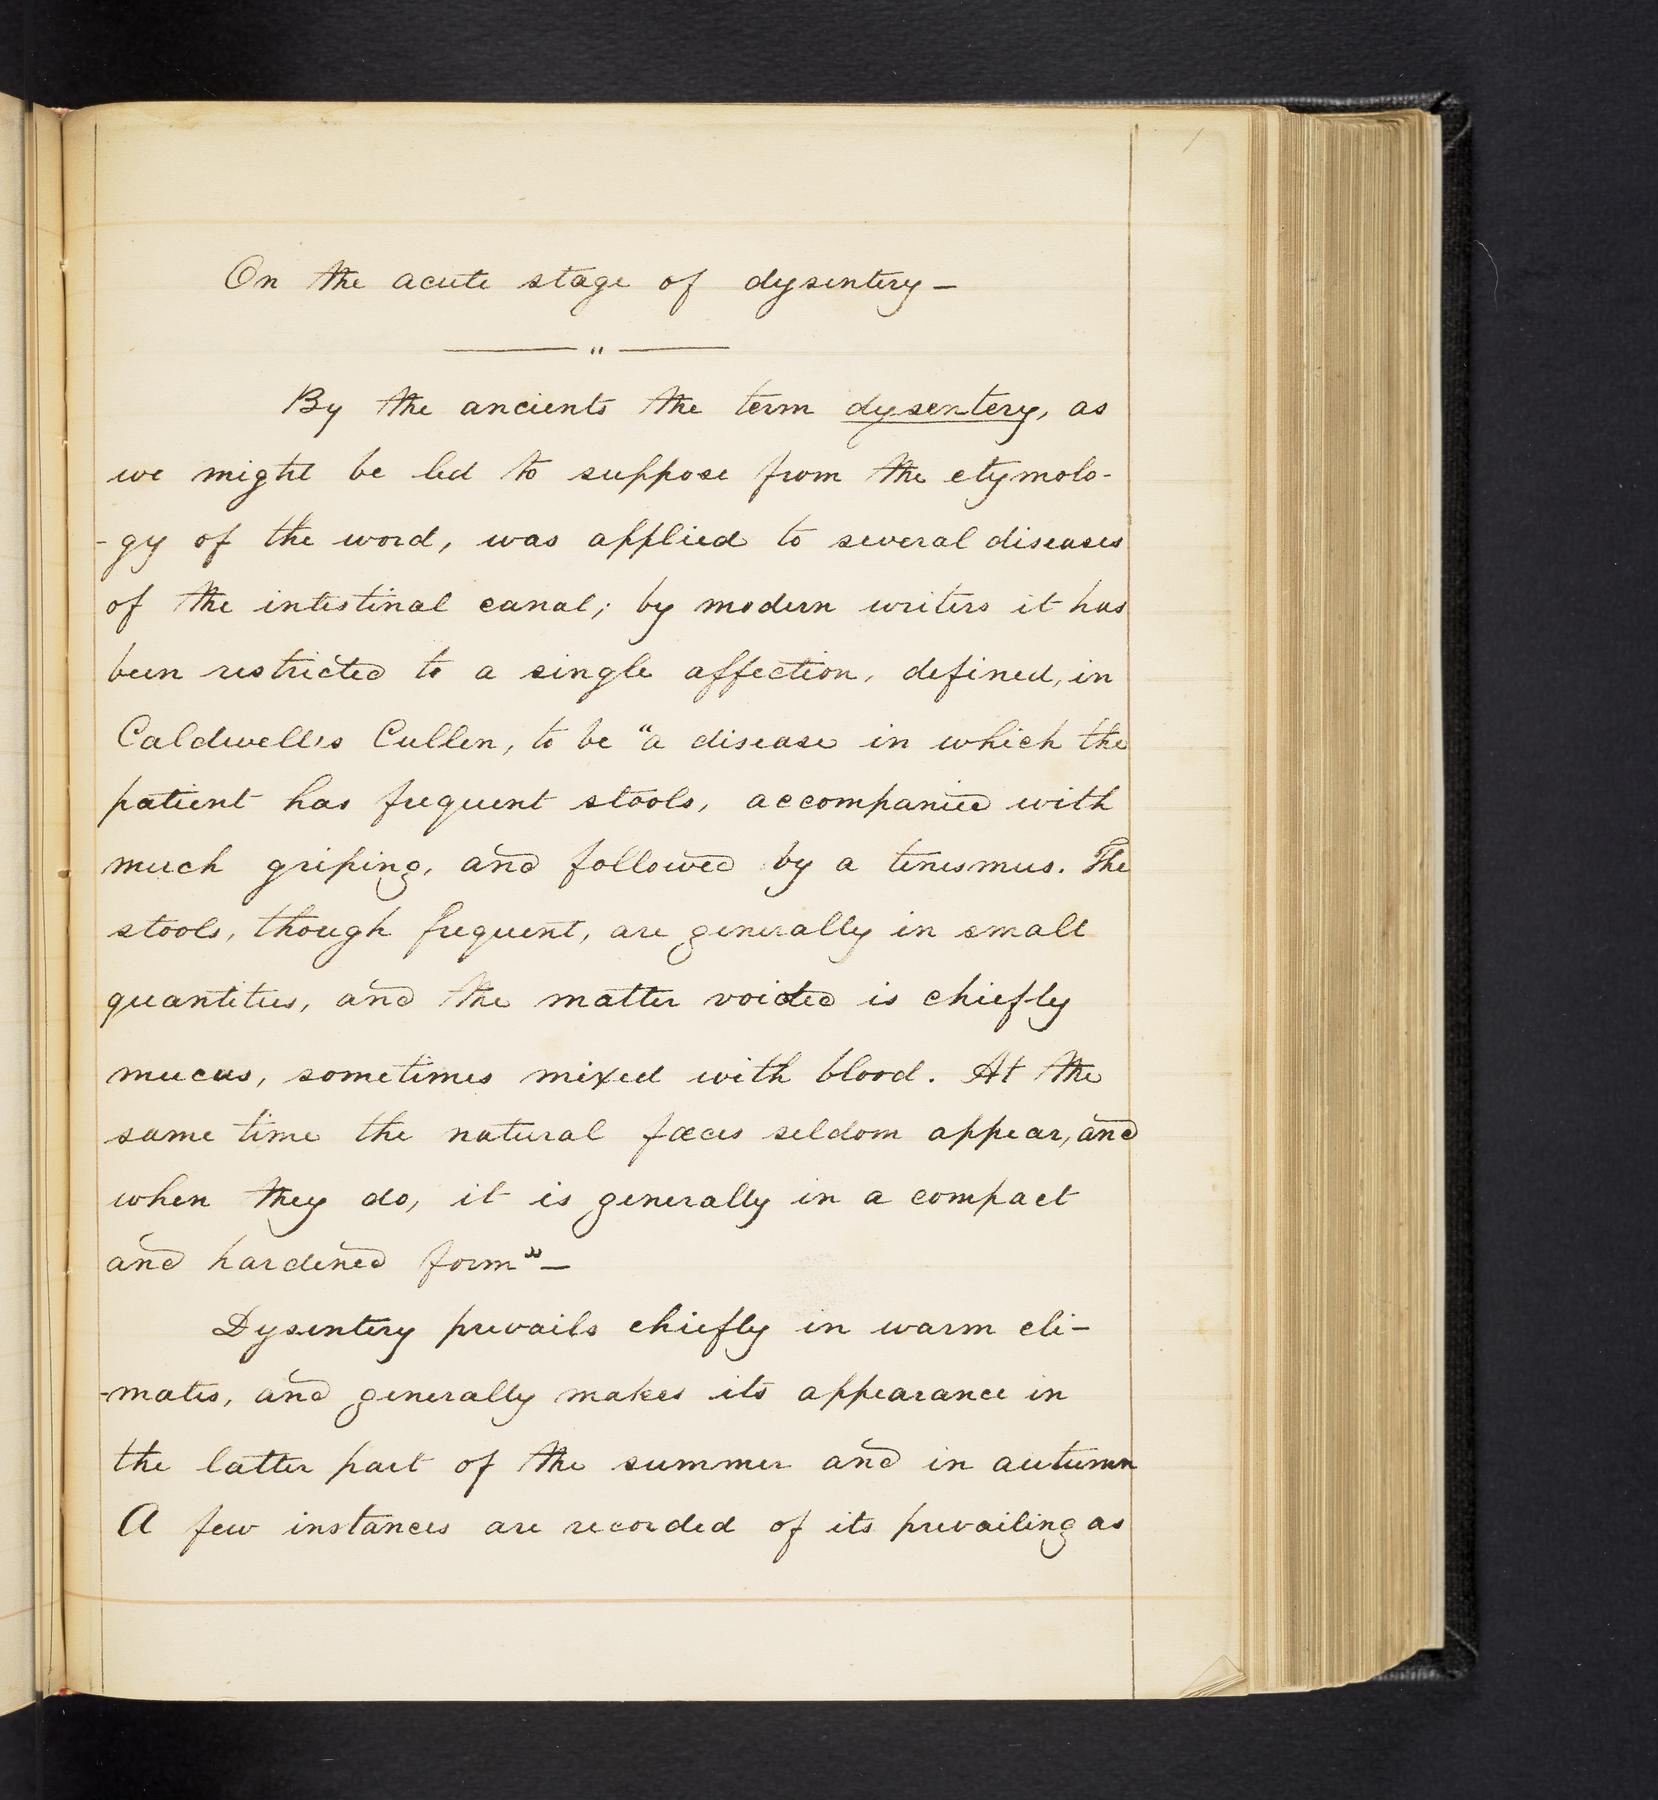 1
On the acute stage of dysentery —
— " —
By the ancients the term dysentery, as
we might be led to suppose from the etymolo-
-gy of the word, was applied to several diseases
of the intestinal canal; by modern writers it has
been restricted to a single affection, defined, in
Caldwell's Cullen, to be "a disease in which the
patient has frequent stools, accompanied with
much griping, and followed by a tenesmus. The
stools, though frequent, are generally in small
quantities, and the matter voided is chiefly
mucus, sometimes mixed with blood. At the
same time the natural fæces seldom appear, and
when they do, it is generally in a compact
and hardened form" —
Dysentery prevails chiefly in warm cli-
-mates, and generally makes its appearance in
the latter part of the summer and in autumn
A few instances are recorded of its prevailing as